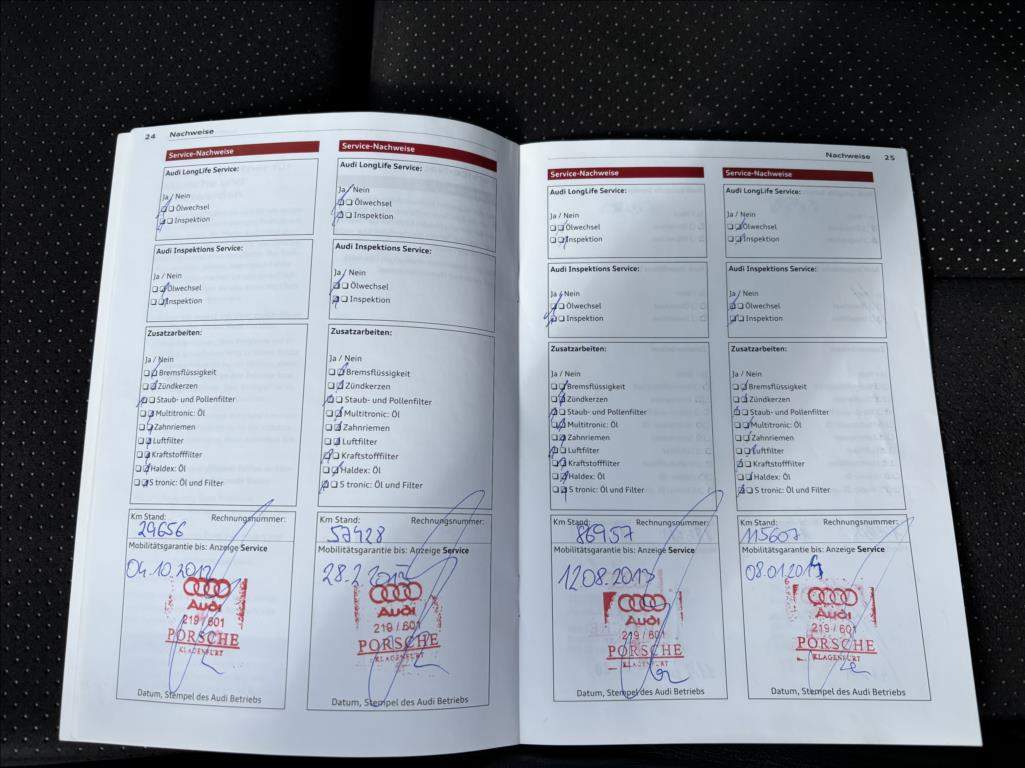 24 Nachweise
Service-Nachweise
Audi LongLife Service:
Ja / Nein
Ölwechsel
Inspektion
Audi Inspektions Service:
Ja / Nein
Ölwechsel
Inspektion
Zusatzarbeiten:
Ja / Nein
Bremsflüssigkeit
Zündkerzen
Staub- und Pollenfilter
Multitronic: Öl
Zahnriemen
Luftfilter
Kraftstofffilter
Haldex: Öl
S tronic: Öl und Filter
Km Stand: Rechnungsnummer:
29656
Mobilitätsgarantie bis: Anzeige Service
04.10.2012
Audi
219 / 601
PORSCHE
KLAGENFURT
Datum, Stempel des Audi Betriebs
Service-Nachweise
Audi LongLife Service:
Ja / Nein
Ölwechsel
Inspektion
Audi Inspektions Service:
Ja / Nein
Ölwechsel
Inspektion
Zusatzarbeiten:
Ja / Nein
Bremsflüssigkeit
Zündkerzen
Staub- und Pollenfilter
Multitronic: Öl
Zahnriemen
Luftfilter
Kraftstofffilter
Haldex: Öl
S tronic: Öl und Filter
Km Stand: Rechnungsnummer:
57428
Mobilitätsgarantie bis: Anzeige Service
28.2.
Audi
219 / 601
PORSCHE
KLAGENFURT
Datum, Stempel des Audi Betriebs
Nachweise 25
Service-Nachweise
Audi LongLife Service:
Ja / Nein
Ölwechsel
Inspektion
Audi Inspektions Service:
Ja / Nein
Ölwechsel
Inspektion
Zusatzarbeiten:
Ja / Nein
Bremsflüssigkeit
Zündkerzen
Staub- und Pollenfilter
Multitronic: Öl
Zahnriemen
Luftfilter
Kraftstofffilter
Haldex: Öl
S tronic: Öl und Filter
Km Stand: Rechnungsnummer:
86957
Mobilitätsgarantie bis: Anzeige Service
12.08.2013
Audi
219 / 601
PORSCHE
KLAGENFURT
Datum, Stempel des Audi Betriebs
Service-Nachweise
Audi LongLife Service:
Ja / Nein
Ölwechsel
Inspektion
Audi Inspektions Service:
Ja / Nein
Ölwechsel
Inspektion
Zusatzarbeiten:
Ja / Nein
Bremsflüssigkeit
Zündkerzen
Staub- und Pollenfilter
Multitronic: Öl
Zahnriemen
Luftfilter
Kraftstofffilter
Haldex: Öl
S tronic: Öl und Filter
Km Stand: Rechnungsnummer:
115607
Mobilitätsgarantie bis: Anzeige Service
Audi
219 / 601
PORSCHE
KLAGENFURT
Datum, Stempel des Audi Betriebs